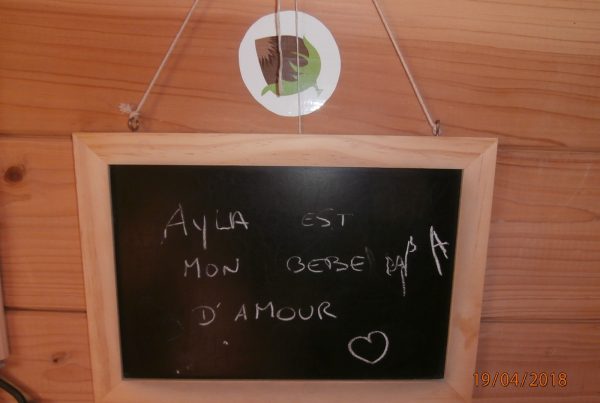 AYLA EST
MON BEBE
D'AMOUR
19/04/2018